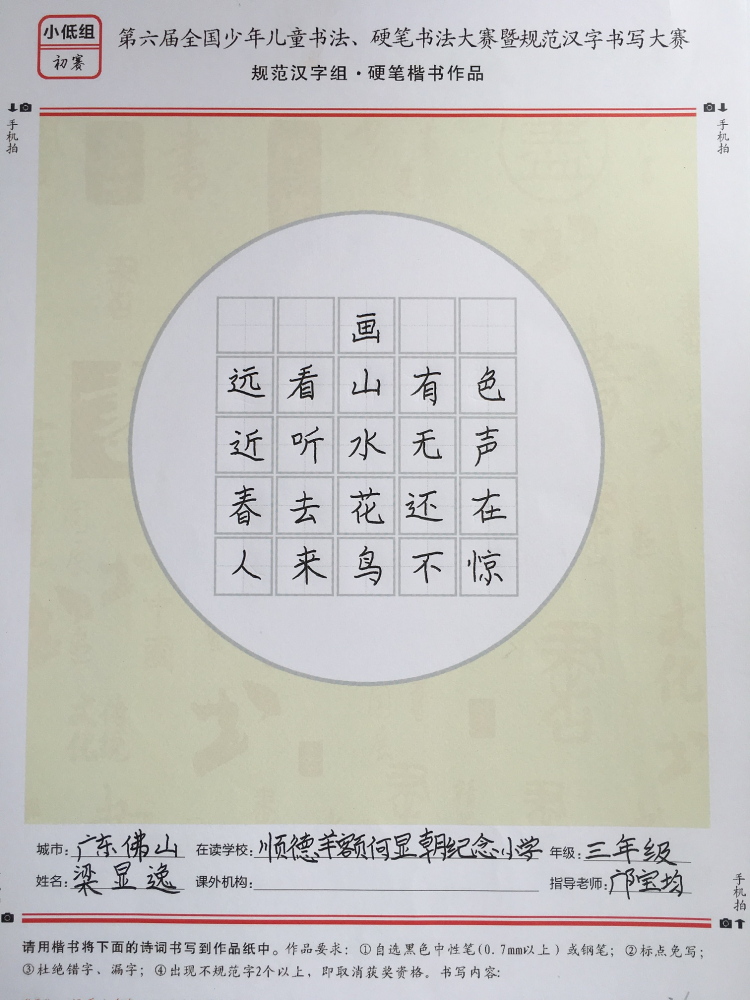 小低组
初赛
第六届全国少年儿童书法、硬笔书法大赛暨规范汉字书写大赛
规范汉字组·硬笔楷书作品
手机拍
手机拍
画
远看山有色
近听水无声
春去花还在
人来鸟不惊
城市：广东佛山 在读学校：顺德羊额何显朝纪念小学 年级：三年级
姓名：梁显逸 课外机构： 指导老师：邝宝均
手机拍
请用楷书将下面的诗词书写到作品纸中。作品要求：①自选黑色中性笔(0.7mm以上)或钢笔；②标点免写；
③杜绝错字、漏字；④出现不规范字2个以上，即取消获奖资格。书写内容：